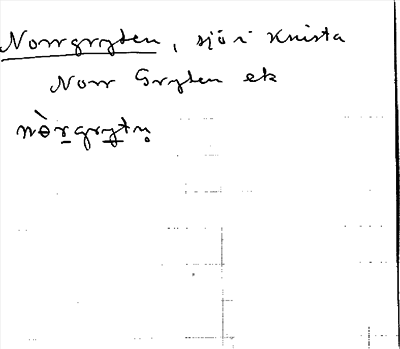 Norrgryten, sjö i Knista
Norr Gryten ek
nòrgrytn̥